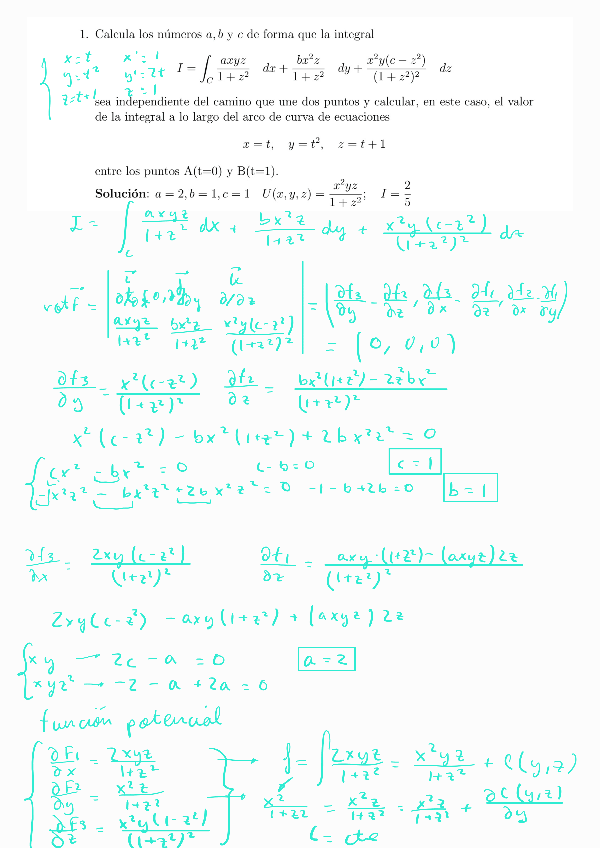 1. Calcula los números a, b y c de forma que la integral
x=t x'=1
y=t² y'=2t
z=t+1 z'=1
I = ∫_C axyz/(1+z²) dx + bx²z/(1+z²) dy + x²y(c−z²)/(1+z²)² dz
sea independiente del camino que une dos puntos y calcular, en este caso, el valor
de la integral a lo largo del arco de curva de ecuaciones
x = t, y = t², z = t + 1
entre los puntos A(t=0) y B(t=1).
Solución: a = 2, b = 1, c = 1 U(x, y, z) = x²yz/(1+z²); I = 2/5
I = ∫_C axyz/(1+z²) dx + bx²z/(1+z²) dy + x²y(c−z²)/(1+z²)² dz
rot f = | i j k ; ∂/∂x ∂/∂y ∂/∂z ; axyz/(1+z²) bx²z/(1+z²) x²y(c−z²)/(1+z²)² | = (∂f3/∂y − ∂f2/∂z, ∂f3/∂x − ∂f1/∂z, ∂f2/∂x · ∂f1/∂y)
= (0, 0, 0)
∂f3/∂y = x²(c−z²)/(1+z²)² ∂f2/∂z = bx²(1+z²) − 2z²bx²/(1+z²)²
x²(c−z²) − bx²(1+z²) + 2bx²z² = 0
cx² − bx² = 0 c−b=0 c=1
−1x²z² − bx²z² + 2bx²z² = 0 −1−b+2b=0 b=1
∂f3/∂x = 2xy(c−z²)/(1+z²)² ∂f1/∂z = axy·(1+z²)−(axyz)2z/(1+z²)²
2xy(c−z²) − axy(1+z²) + (axyz)2z
xy → 2c − a = 0 a=2
xyz² → −2 − a + 2a = 0
función potencial
∂F1/∂x = 2xyz/(1+z²) → f = ∫ 2xyz/(1+z²) = x²yz/(1+z²) + C(y,z)
∂F2/∂y = x²z/(1+z²) → x²/(1+z²) = x²z/(1+z²) = x²z/(1+z²) + ∂C(y,z)/∂y
∂F3/∂z = x²y(1−z²)/(1+z²)² C = cte